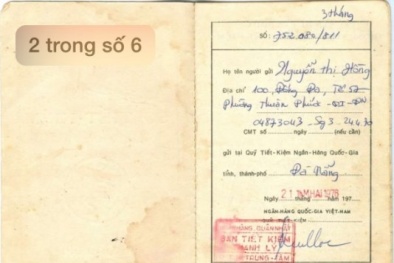 2 trong số 6
3 tháng
SỐ: 752.082/811
Họ tên người gửi Nguyễn Thị Hồng
Địa chỉ 100 Đống Đa, Tổ 57
Phường Thuận Phước
CMT số ngày (nếu cần)
gửi tại Quỹ Tiết-Kiệm Ngân-Hàng Quốc-Gia
tỉnh, thành-phố Đà Nẵng
Ngày tháng năm 197
NGÂN-HÀNG QUỐC-GIA VIỆT-NAM
BAN TIẾT KIỆM
THANH LÝ